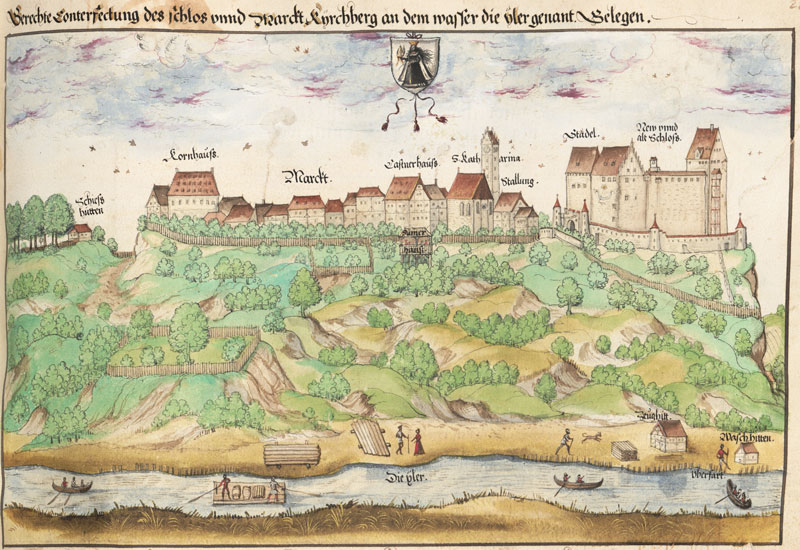 Gerechte Conterfectung des schlos vnnd Marckt Kyrchberg an dem wasser die yler genant. Gelegen.
Kornhauß.
Marckt.
Castnerhauß.
S. Kath arina
Stallung.
Städel.
New vnnd
alt Schloß.
Schieß
hütten
Sumer
hauß.
Zeughitt.
Wesch hitten.
Die yler.
vberfart.